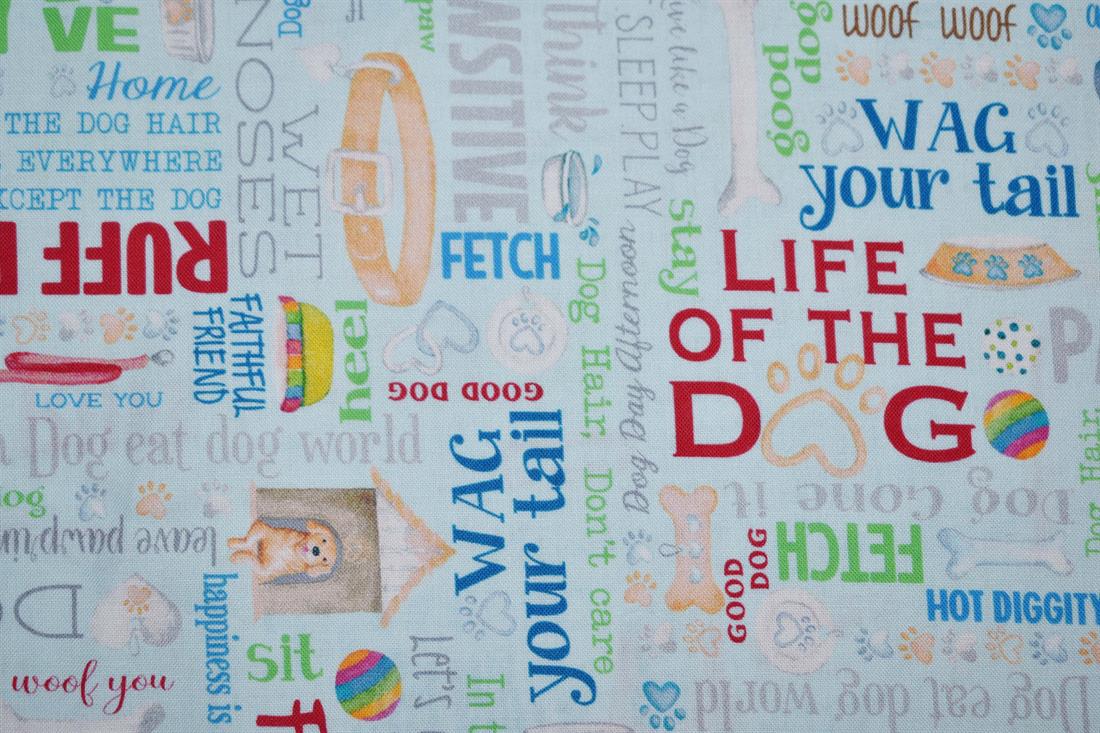 VE
Home
THE DOG HAIR
EVERYWHERE
EXCEPT THE DOG
RUFF
FAITHFUL
FRIEND
LOVE YOU
Dog eat dog world
dog
leave pawprin
happiness is
woof you
sit
F
NOSES
WET
Dog
paw
NSITIVE
think
FETCH
heel
GOOD DOG
WAG
your tail
Let's
In t
Dog Hair, Don't care
Dog Day Afternoon
SLEEP PLAY
live like a Dog
stay
good
dog
woof woof
WAG
your tail
LIFE
OF THE
DOG
P
Dog Gone it
FETCH
GOOD
DOG
HOT DIGGITY
Dog Hair,
Dog eat dog world